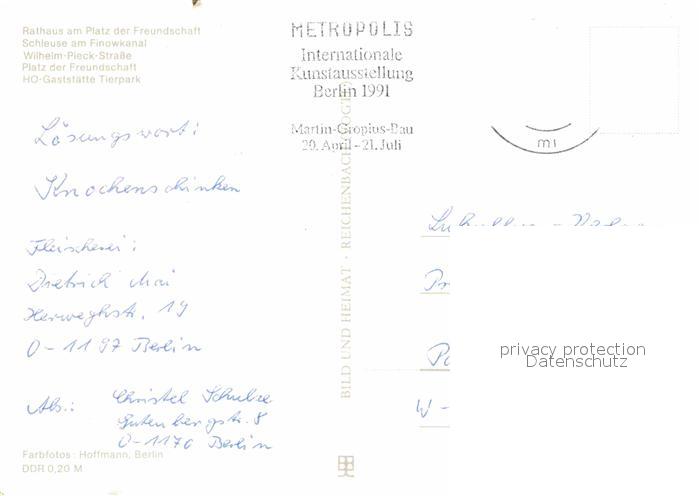 Rathaus am Platz der Freundschaft
Schleuse am Finowkanal
Wilhelm-Pieck-Straße
Platz der Freundschaft
HO-Gaststätte Tierpark
METROPOLIS
Internationale
Kunstausstellung
Berlin 1991
Martin-Gropius-Bau
20. April - 21. Juli
m1
Lösungswort:
Knochenschinken
Fleischerei:
Dietrich Mai
Herweghstr. 19
O-1197 Berlin
Abs.: Christel Schulze
Gutenbergstr. 8
O-1170 Berlin
Farbfotos: Hoffmann, Berlin
DDR 0,20 M
BILD UND HEIMAT · REICHENBACH (VOGTL)
W -
privacy protection
Datenschutz